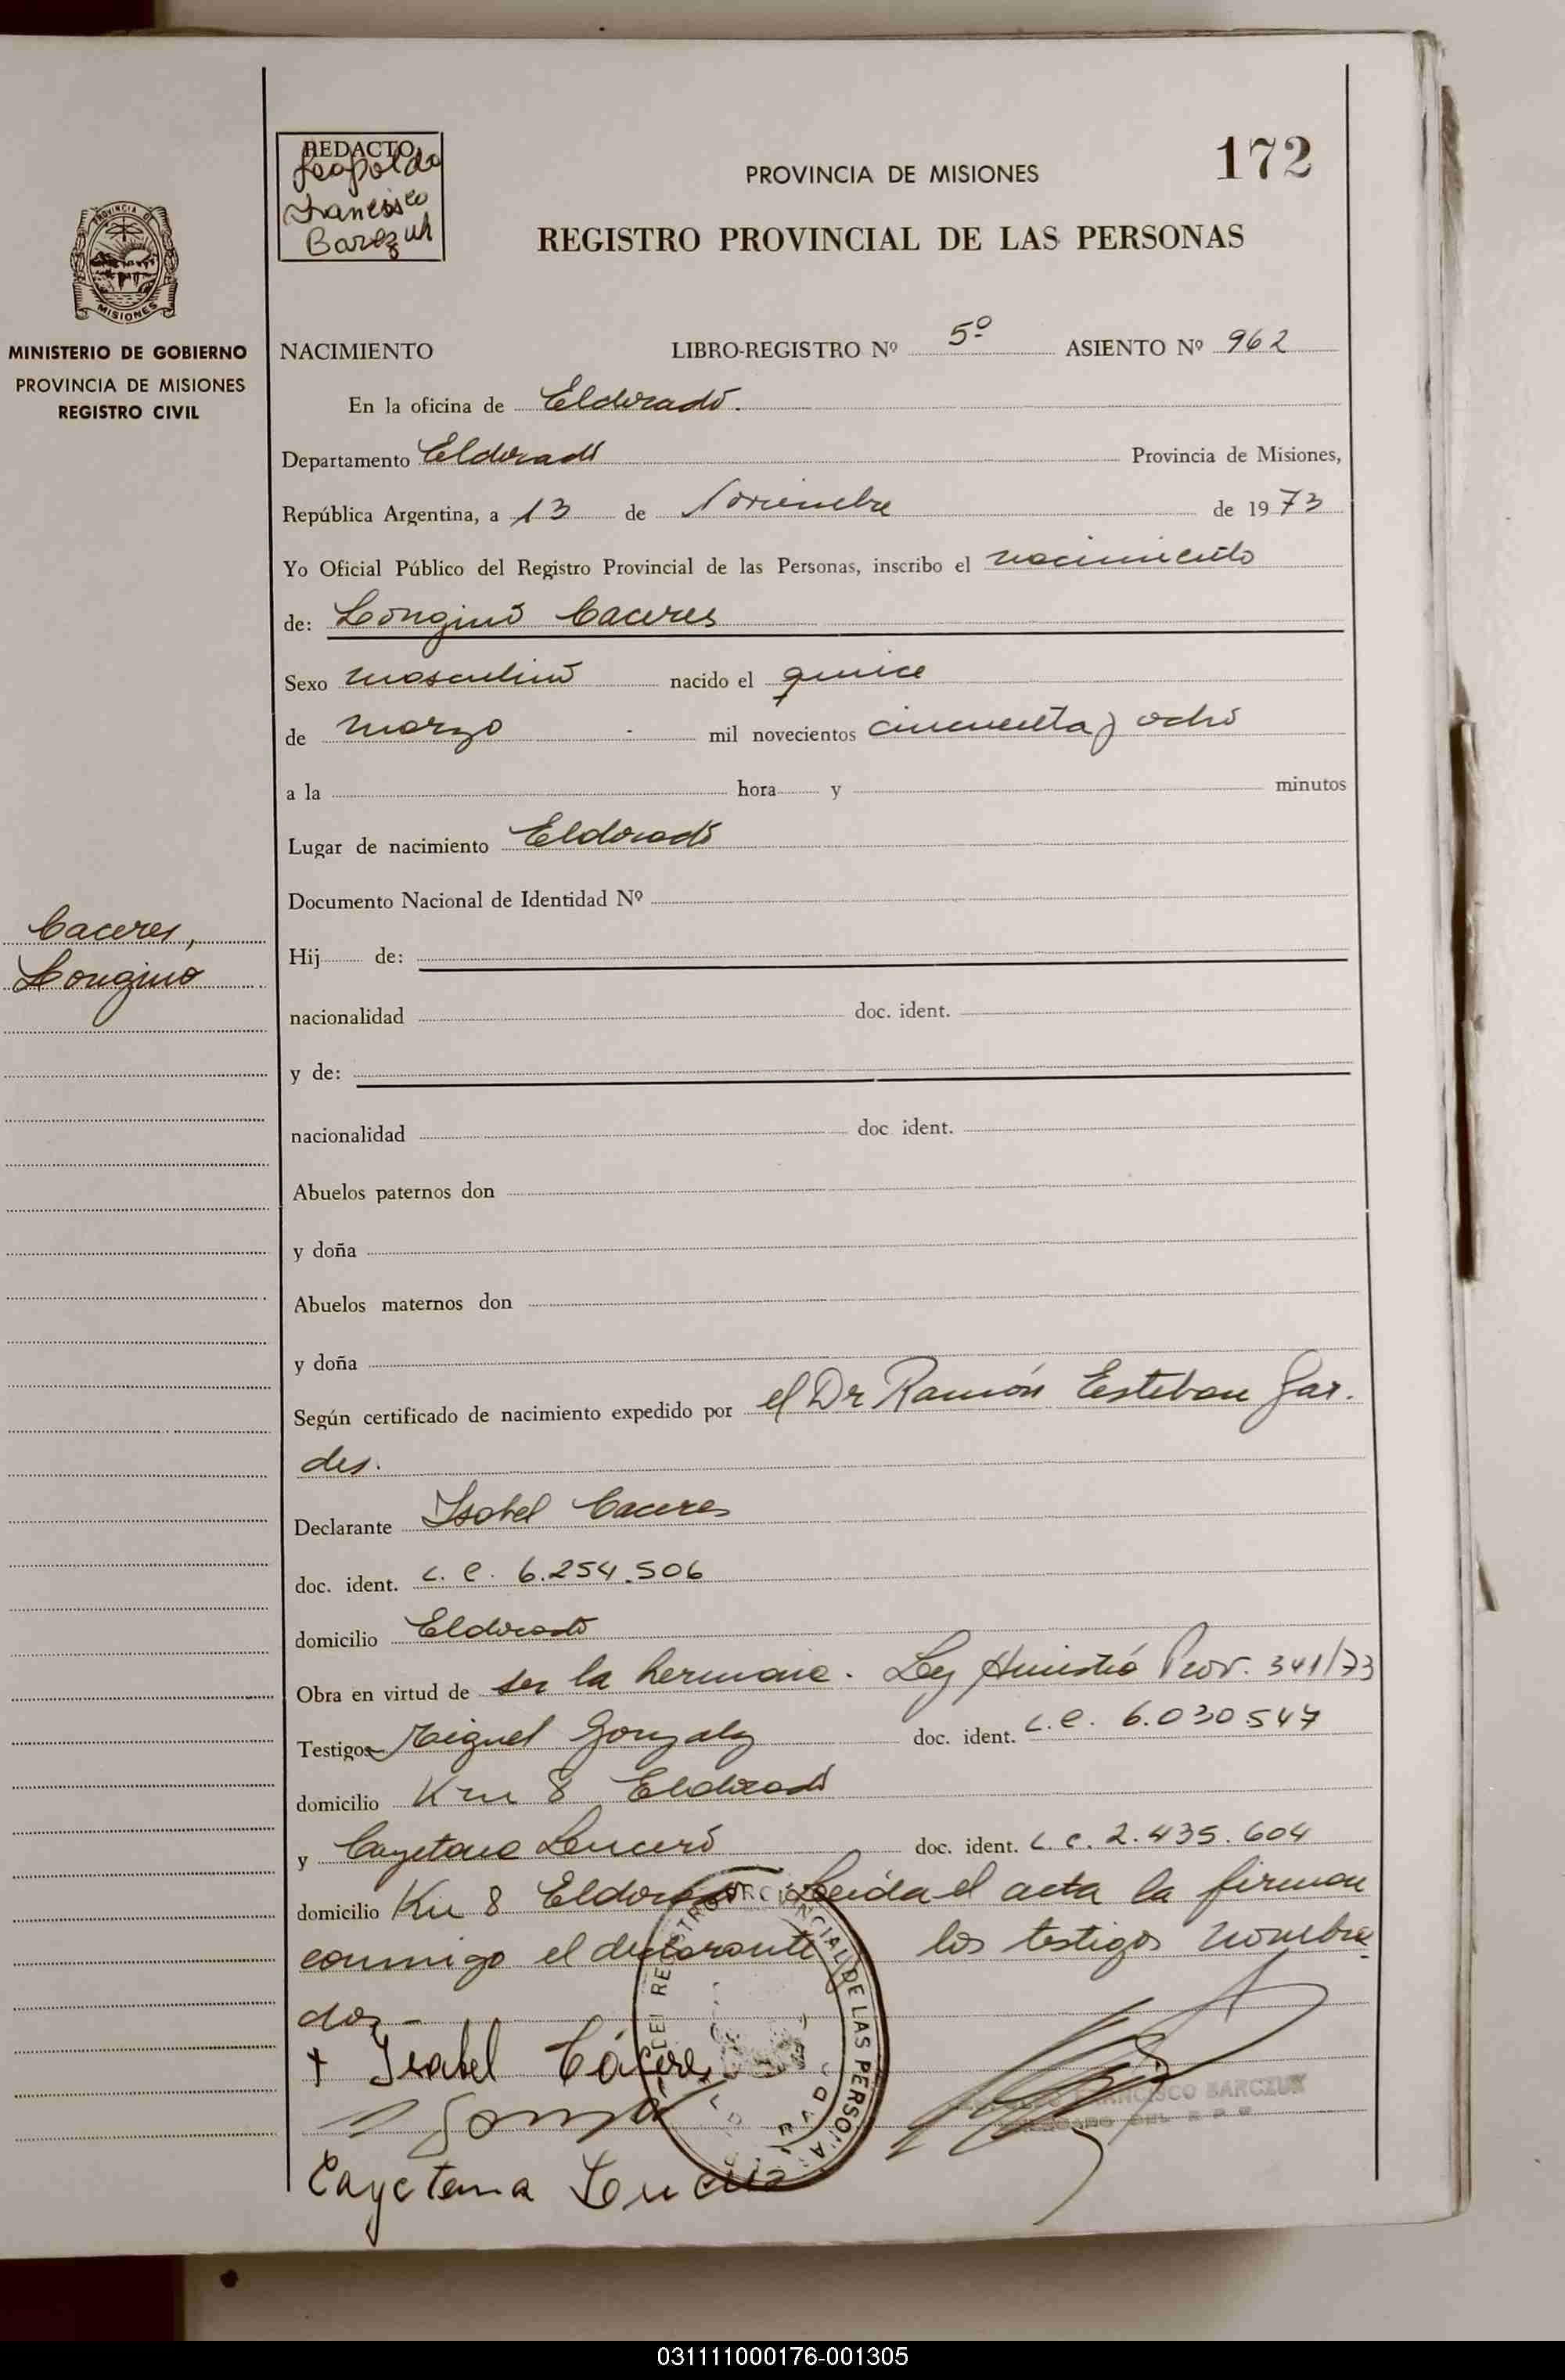 172
REDACTO
Leopoldo
Francisco
Barczuk
PROVINCIA DE MISIONES
REGISTRO PROVINCIAL DE LAS PERSONAS
PROVINCIA DE
MISIONES
MINISTERIO DE GOBIERNO
PROVINCIA DE MISIONES
REGISTRO CIVIL
NACIMIENTO LIBRO-REGISTRO Nº 5º ASIENTO Nº 962
En la oficina de Eldorado.
Departamento Eldorado Provincia de Misiones,
República Argentina, a 13 de Noviembre de 1973
Yo Oficial Público del Registro Provincial de las Personas, inscribo el nacimiento
de: Longino Caceres
Sexo masculino nacido el quince
de marzo mil novecientos cincuenta y ocho
a la hora y minutos
Lugar de nacimiento Eldorado
Documento Nacional de Identidad Nº
Caceres,
Longino
Hij de:
nacionalidad doc. ident.
y de:
nacionalidad doc. ident.
Abuelos paternos don
y doña
Abuelos maternos don
y doña
Según certificado de nacimiento expedido por el Dr Ramón Esteban Gar.
des.
Declarante Isabel Caceres
doc. ident. L. C. 6.254.506
domicilio Eldorado
Obra en virtud de ser la hermana. Ley Amnistía Prov. 341/73
Testigos Miguel Gonzalez doc. ident. L. e. 6.030.547
domicilio Km 8 Eldorado
y Cayetana Lencero doc. ident. L. c. 2.435.604
domicilio Km 8 Eldorado Leida el acta la firman
conmigo el declarante los testigos nombra
dos -
+ Isabel Cáceres
REGISTRO PROVINCIAL DE LAS PERSONAS
FRANCISCO BARCZUK
Cayetana
031111000176-001305